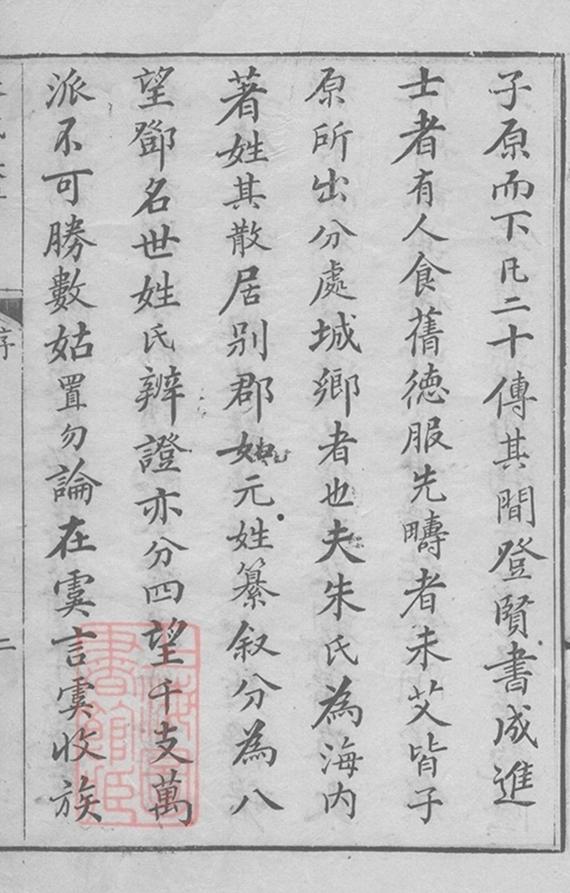 子原而下凡二十傳其間登賢書成進
士者有人食舊德服先疇者未艾皆子
原所出分處城鄉者也夫朱氏為海内
著姓其散居别郡如元姓纂叙分為八
望鄧名世姓氏辨證亦分四望千支萬
派不可勝數姑置勿論在虞言虞收族
序
二